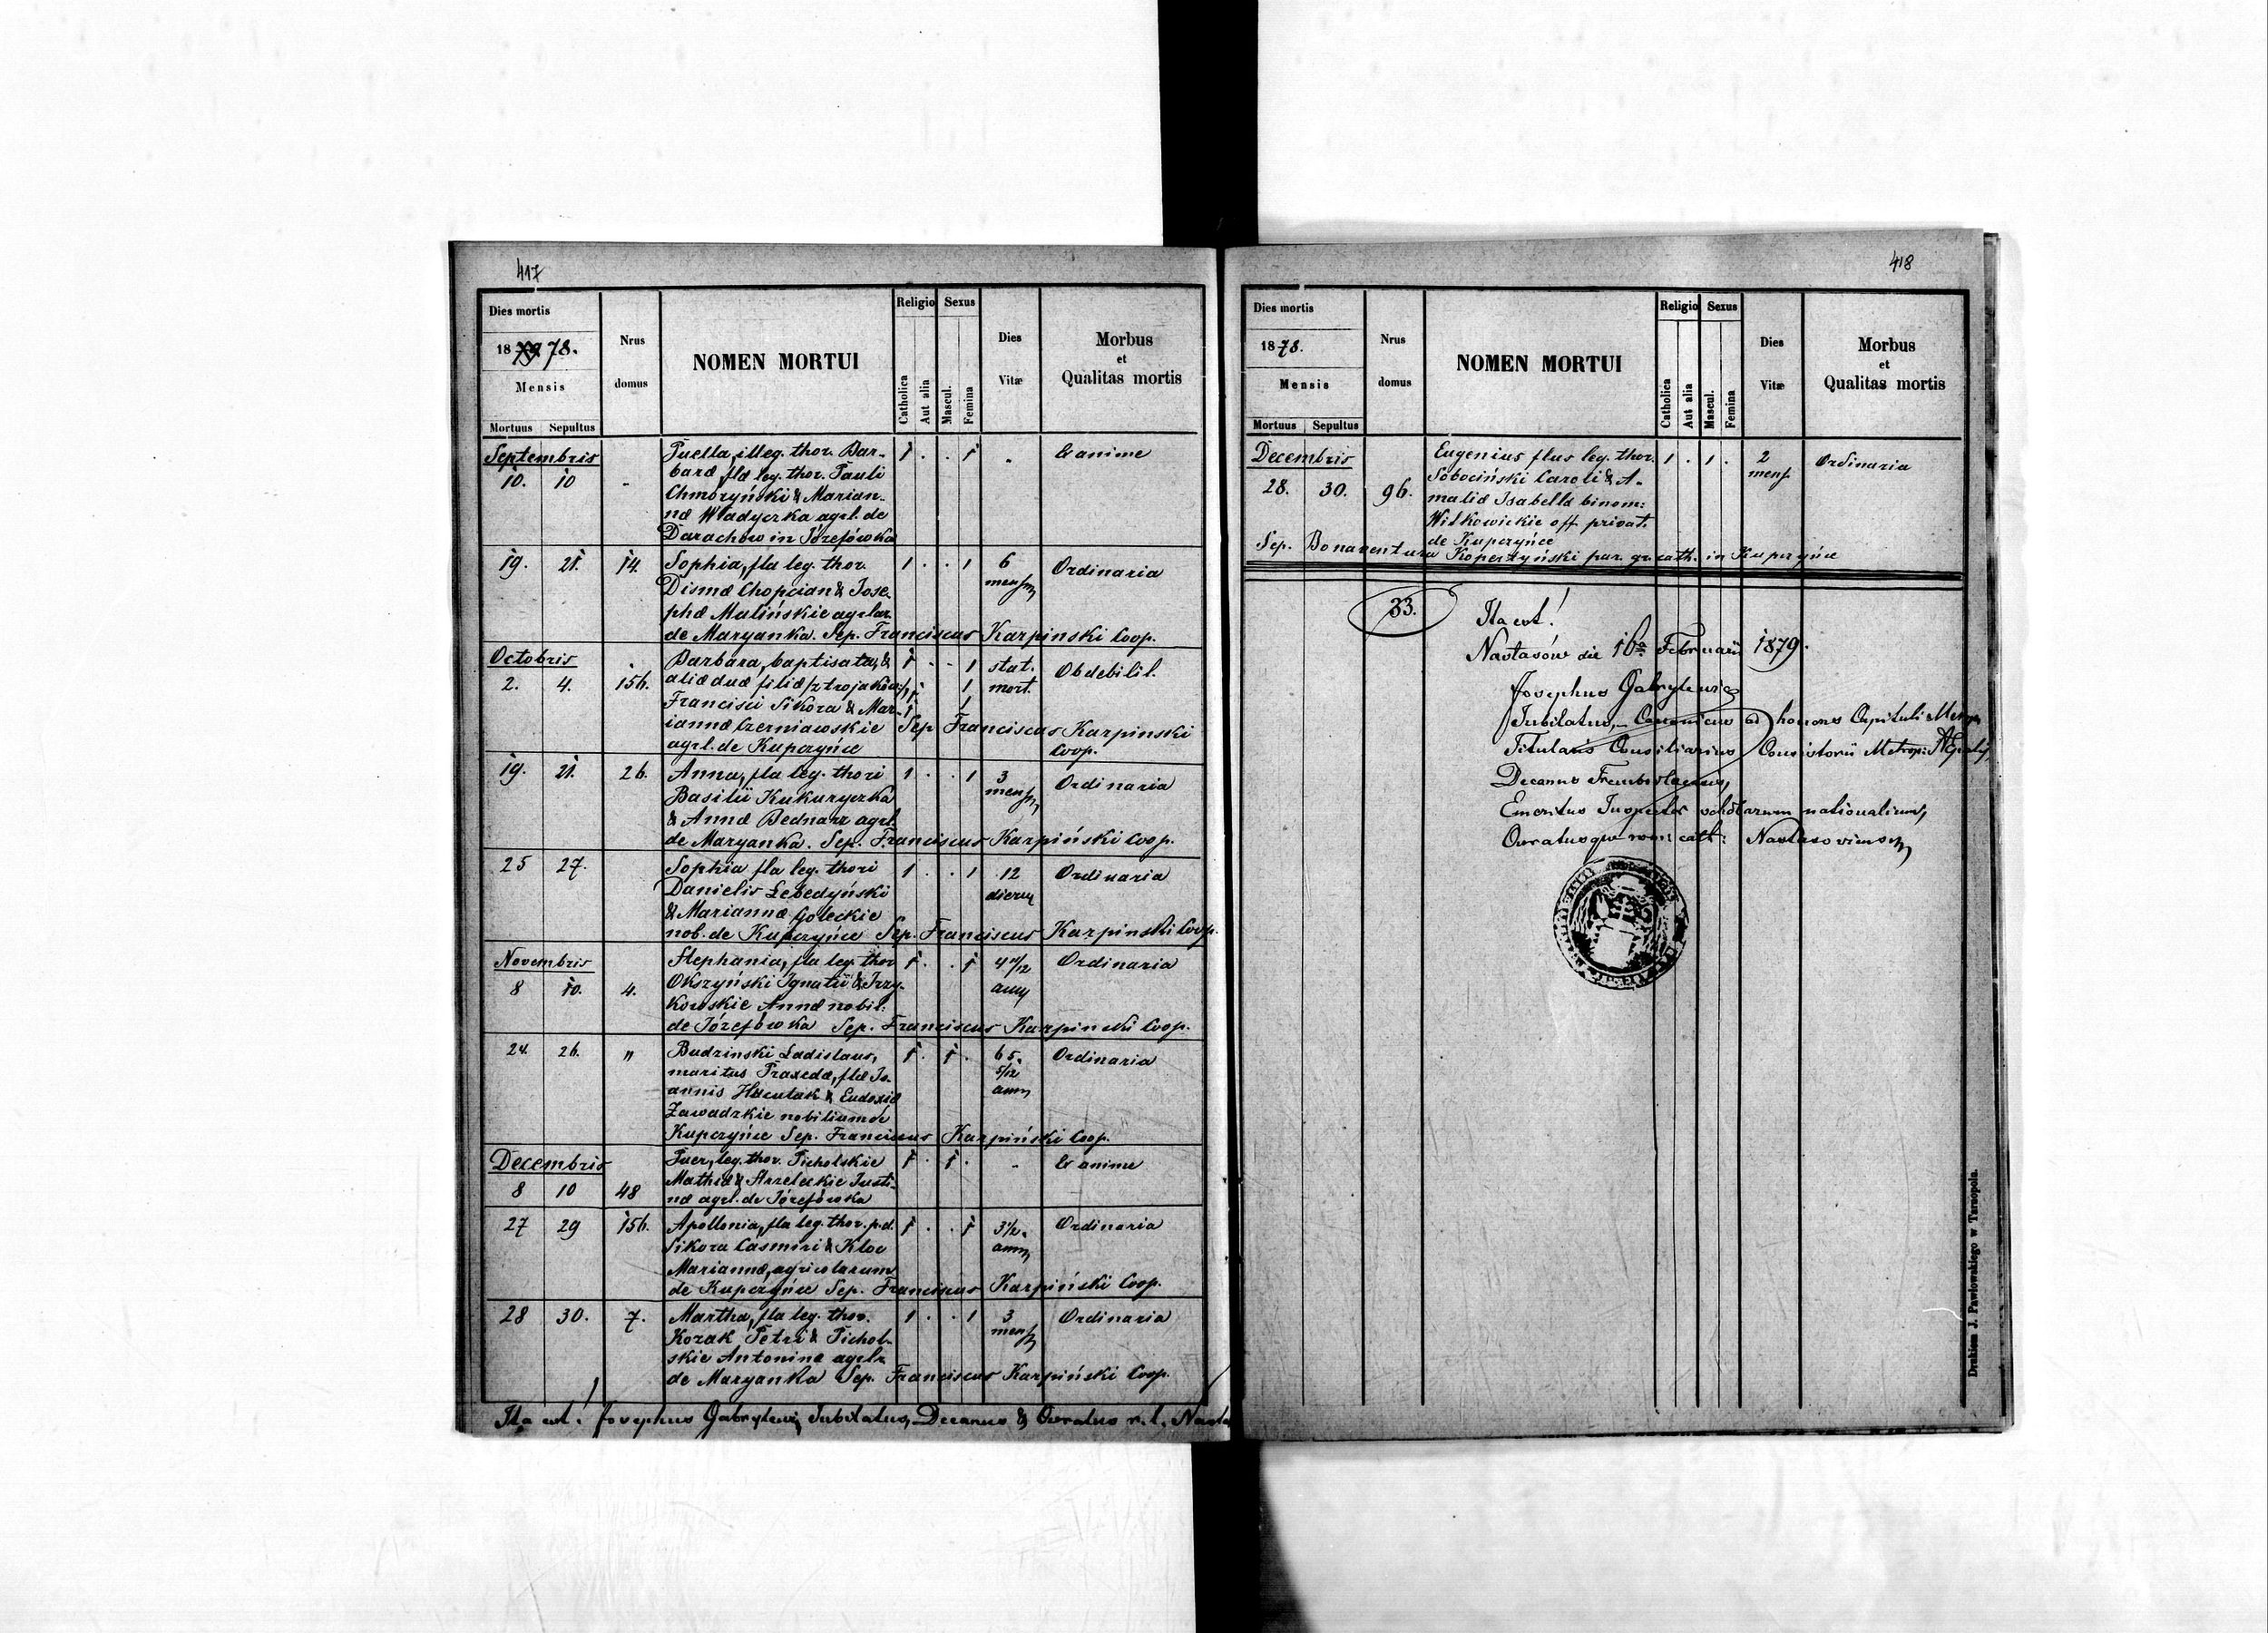 417
Dies mortis
1879 78.
Mensis
Mortuus Sepultus
Nrus domus
NOMEN MORTUI
Religio
Catholica
Aut alia
Sexus
Mascul.
Femina
Dies Vitæ
Morbus
et
Qualitas mortis
Septembris Puella, illeg. thor. Bar- 1 . . 1 " Exanime
10. 10 - baræ flæ leg. thor. Pauli
Chmorzyński & Marian-
næ Władyczka agrl. de
Darachów in Józefówka
19. 21. 14. Sophia, fla leg. thor. 1 . . 1 6 Ordinaria
Dismæ Chopcian & Jose- mensm
phæ Malińskie agrlar.
de Maryanka. Sep. Franciscus Karpinski Coop.
Octobris Barbara, baptisata, & 1 . . 1 stat. Ob debilit.
2. 4. 156. aliæ duæ filiæ /z trojaków/ 1 1 mort.
Francisci Sikora & Mar- 1 1
iannæ Czerniawskie Sep Franciscus Karpinski
agrl. de Kupczyńce Coop.
19. 21. 26. Anna, fla leg. thori 1 . . 1 3 Ordinaria
Basilii Kukuryczka mensm
& Annæ Bednarz agrl.
de Maryanka. Sep. Franciscus Karpiński Coop.
25 27. Sophia fla leg. thori 1 . . 1 12 Ordinaria
Danielis Lebedyński dierum
& Mariannæ Goleckie
nob. de Kupczyńce Sep. Franciscus Karpinski Coop.
Novembris Stephania, fla leg. thor 1 . . 1 4 11/12 Ordinaria
8 10. 4. Okszyński Ignatii & Trzy-
kowskie Annæ nobil.
de Józefówka Sep. Franciscus Karpinski Coop.
24. 26. " Budzinski Ladislaus, 1 . 1 . 65. Ordinaria
maritus Praxedæ, flæ Jo- 5/12
annis Hacutak & Eudoxiæ
Zawadzkie nobilium de
Kupczyńce Sep. Franciscus Karpiński Coop.
Decembris Puer, leg. thor. Picholskie 1 . 1 . - Exanime
8 10 48 Mathiæ & Strzeleckie Justi-
næ agrl. de Józefówka
27 29 156. Apollonia, fla leg. thor. p.d. 1 . . 1 3 1/2. Ordinaria
Sikora Casimiri & Kloc
Mariannæ, agricolarum
de Kupczyńce Sep. Franciscus Karpiński Coop.
28 30. 7. Martha, fla leg. thor. 1 . . 1 3 Ordinaria
Kozak Petri & Pichol- mensm
skie Antoninæ agrl.
de Maryanka Sep. Franciscus Karpiński Coop.
Ita est! Josephus Gabrylewicz Jubilatus, Decanus & Curatus r. l. Nasta
418
Dies mortis
1878.
Mensis
Mortuus Sepultus
Nrus domus
NOMEN MORTUI
Religio
Catholica
Aut alia
Sexus
Mascul.
Femina
Dies Vitæ
Morbus
et
Qualitas mortis
Decembris Eugenius flus leg. thor. 1 . 1 . 2 Ordinaria
28. 30. 96. Sobociński Caroli & A- mens.
maliæ Isabellæ binom:
Witkowickie off. privat.
de Kupczyńce
Sep. Bonaventura Kopertyński par. gr. cath. in Kupczyńce
33.
Ita est!
Nastasów die 16a Februarii 1879.
Josephus Gabrylewicz
Jubilatus, Canonicus ad honores Capituli
Titularis Consiliarius Consistorii Metrop:
Decanus Trembovlensis,
Emeritus Inspector scholarum nationalium,
Curatusque rom: cath: Nastasoviensis
Drukiem J. Pawłowskiego w Tarnopolu.